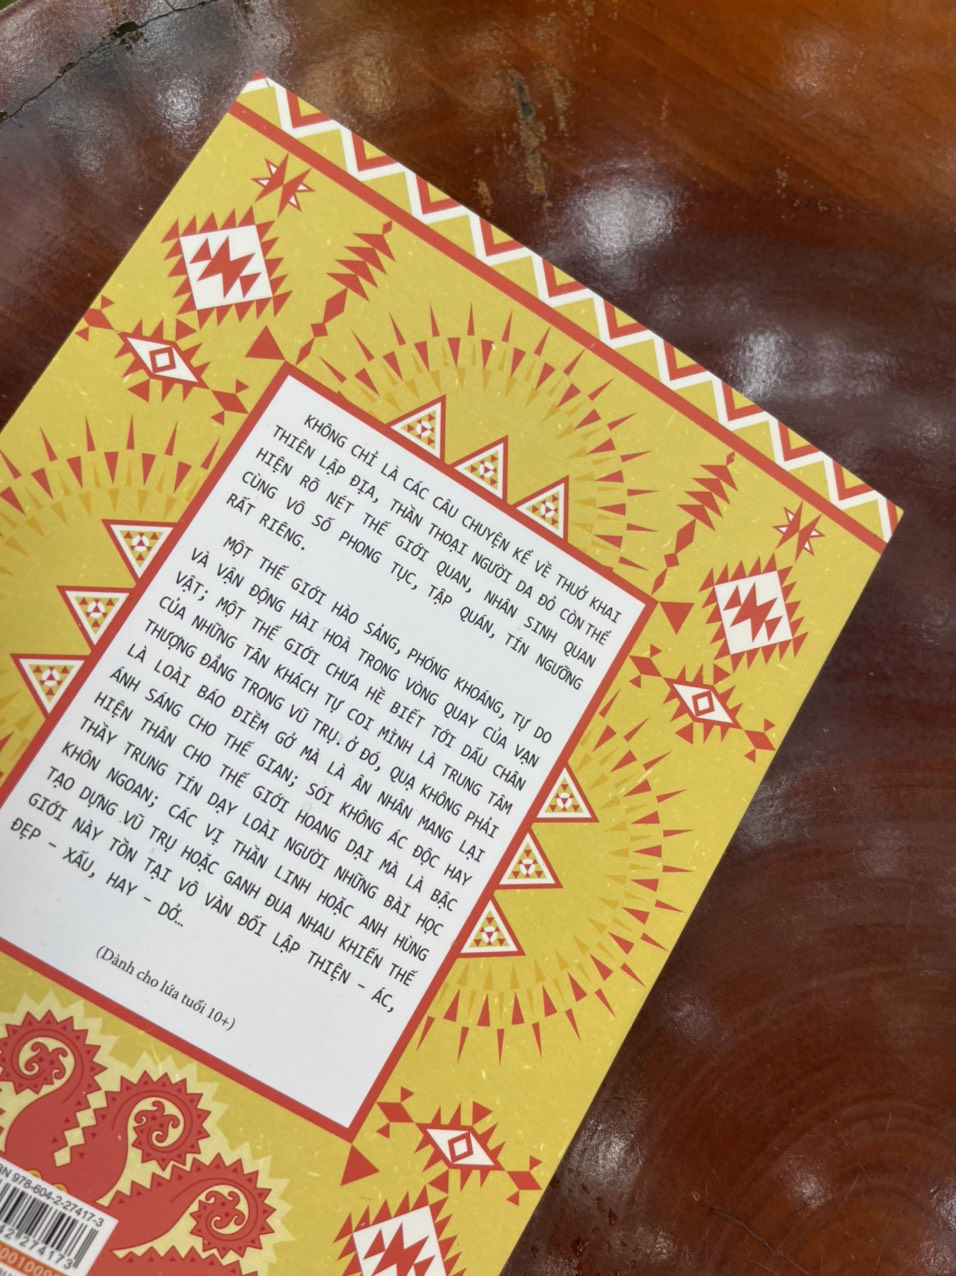 KHÔNG CHỈ LÀ CÁC CÂU CHUYỆN KỂ VỀ THUỞ KHAI
THIÊN LẬP ĐỊA, THẦN THOẠI NGƯỜI DA ĐỎ CÒN THỂ
HIỆN RÕ NÉT THẾ GIỚI QUAN, NHÂN SINH QUAN
CÙNG VÔ SỐ PHONG TỤC, TẬP QUÁN, TÍN NGƯỠNG
RẤT RIÊNG.
MỘT THẾ GIỚI HÀO SẢNG, PHÓNG KHOÁNG, TỰ DO
VÀ VẬN ĐỘNG HÀI HOÀ TRONG VÒNG QUAY CỦA VẠN
VẬT; MỘT THẾ GIỚI CHƯA HỀ BIẾT TỚI DẤU CHÂN
CỦA NHỮNG TÂN KHÁCH TỰ COI MÌNH LÀ TRUNG TÂM
THƯỢNG ĐẲNG TRONG VŨ TRỤ. Ở ĐÓ, QUẠ KHÔNG PHẢI
LÀ LOÀI BÁO ĐIỀM GỞ MÀ LÀ ÂN NHÂN MANG LẠI
ÁNH SÁNG CHO THẾ GIAN; SÓI KHÔNG ÁC ĐỘC HAY
HIỆN THÂN CHO THẾ GIỚI HOANG DẠI MÀ LÀ BẬC
THẦY TRUNG TÍN DẠY LOÀI NGƯỜI NHỮNG BÀI HỌC
KHÔN NGOAN; CÁC VỊ THẦN LINH HOẶC ANH HÙNG
TẠO DỰNG VŨ TRỤ HOẶC GANH ĐUA NHAU KHIẾN THẾ
GIỚI NÀY TỒN TẠI VÔ VÀN ĐỐI LẬP THIỆN – ÁC,
ĐẸP – XẤU, HAY – DỞ…
(Dành cho lứa tuổi 10+)
978-604-2-27417-3